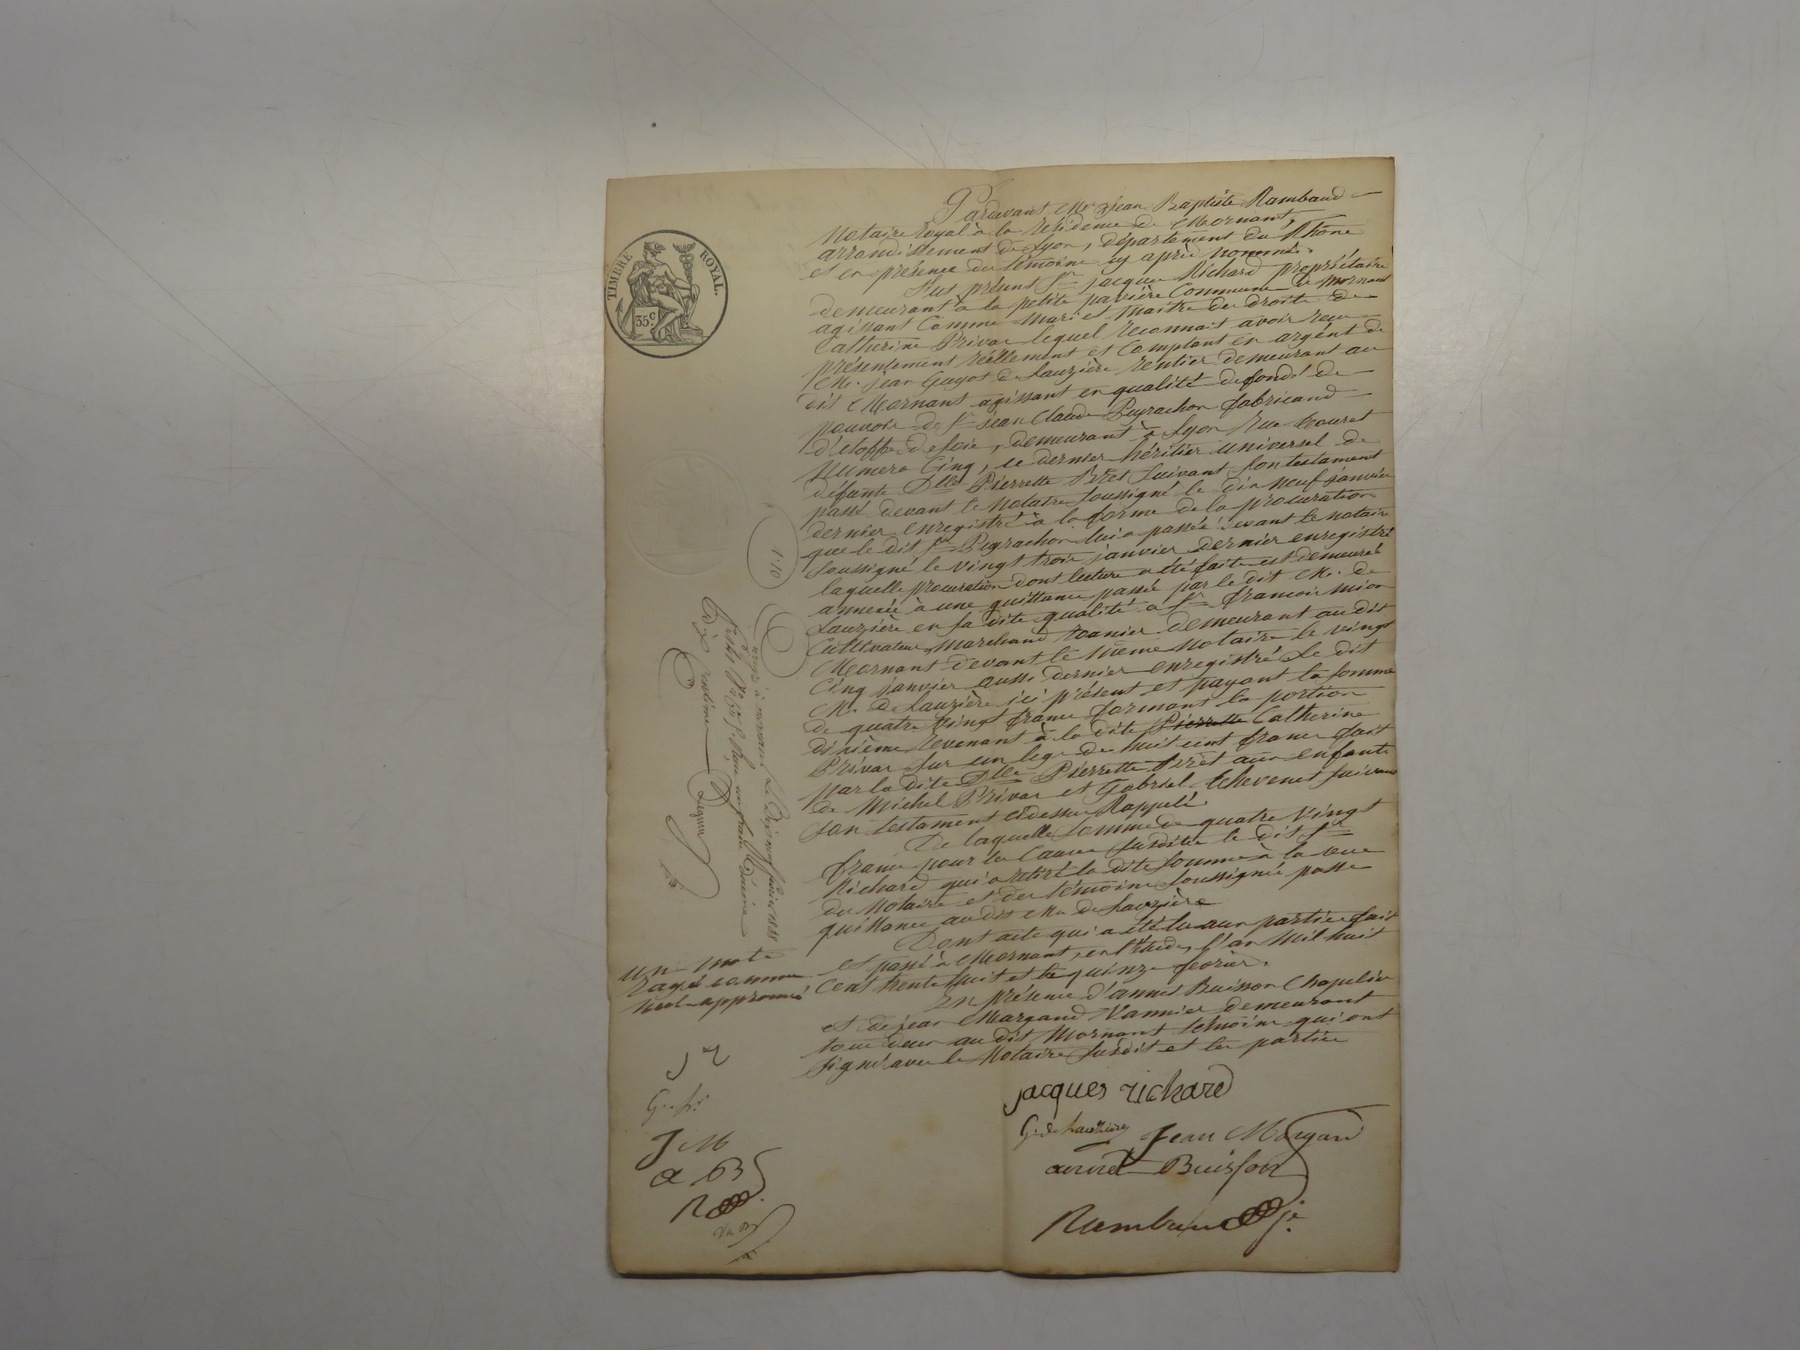 TIMBRE ROYAL.
35c
Pardevant Me Jean Baptiste Rambaud
Notaire royal à la résidence de Mornant,
arrondissement de Lyon, département du Rhône
et en présence des témoins cy après nommés.
Fut présent Sr jacques Richard propriétaire
demeurant à la petite pavière Commune de Mornant
agissant Comme mari et maitre des droits de
Catherine Privas lequel reconnait avoir reçu
présentement réellement et Comptant en argent de
Mr. jean Guyot de Lauzière rentier demeurant au
dit Mornant agissant en qualité de fondé de
pouvoir de Sr jean Claude Peyrachon fabricand
d'etoffe de soie, demeurant à Lyon rue touret
Numero Cinq, ce dernier héritier universel de
défunte Dlle Pierrette Siret suivant son testament
passé devant le Notaire soussigné le dix neuf janvier
dernier enregistré à la forme de la procuration
que le dit Sr Peyrachon lui a passée devant le notaire
soussigné le vingt trois janvier dernier enregistré
laquelle procuration dont lecture a été faite est demeurée
annexée à une quittance passé par le dit Mr. de
Lauzière en sa dite qualité à Sr francois mion
Cultivateur, Marchand tranier demeurant au dit
Mornant devant le même Notaire le vingt
Cinq janvier aussi dernier enregistré Le dit
Mr. de Lauzière ici présent et payant la somme
de quatre vingt francs formant la portion
dixième revenant à la dite Pierrette Catherine
Privas sur un legs de huit cent francs fait
par la dite Dlle Pierrette Siret aux enfants
de Michel Privas et Gabriel thevenet suivant
son testament cidessus Rappelé.
De laquelle somme de quatre vingt
francs pour les Causes susdites le dit Sr
Richard qui a retiré la dite somme à la vue
du Notaire et des témoins soussignés passe
quittance au dit Mr de Lauzière
Dont acte qui a été lu aux parties fait
et passé à Mornant, en l'étude, l'an mil huit
Cent trente huit et le quinze fevrier.
En présence d'annet Buisson Chapelier
et de jean Margand Vannier demeurant
tous deux au dit Mornant temoins qui ont
signé avec le Notaire susdit et les parties
1.10
Enregistré à mornant Le Dix neuf février 1838
un mot
rayé comme
nul approuvé
J R
J M
a B
R
jacques richard
G. de Lauzière
Jean Margand
annet Buisson
Rambaud